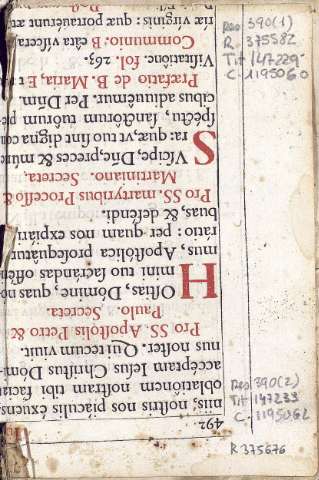 Reg 390(1)
R. 375582
Tit 147229
C. 1195060
492
mus; noſtris nos piáculis éxuens
oblatiónem noſtram tibi faciat
accéptam Ieſus Chriſtus Dómi-
nus noſter. Qui tecum viuit.
Pro SS. Apoſtolis Petro &
Paulo. Secreta.
HOſtias, Dómine, quas no-
mini tuo ſacrándas offé
mus, Apoſtólica proſequátur
rátio: per quam nos expiári
buas, & deféndi.
Pro SS. martyribus Proceſſo &
Martiniano. Secreta.
SVſcipe, Dñe, preces & mune
ra: quæ, vt tuo ſint digna con
ſpéctu, ſanctórum tuórum pre
cibus adiuuémur. Per Dñm.
Præfatio de B. Maria, Et,
Viſitatióne. fol. 263.
Communio. Beáta víſcera
ríæ vírginis: quæ portauérunt
Reg 390(2)
Tit 147233
C. 1195062
R 375676